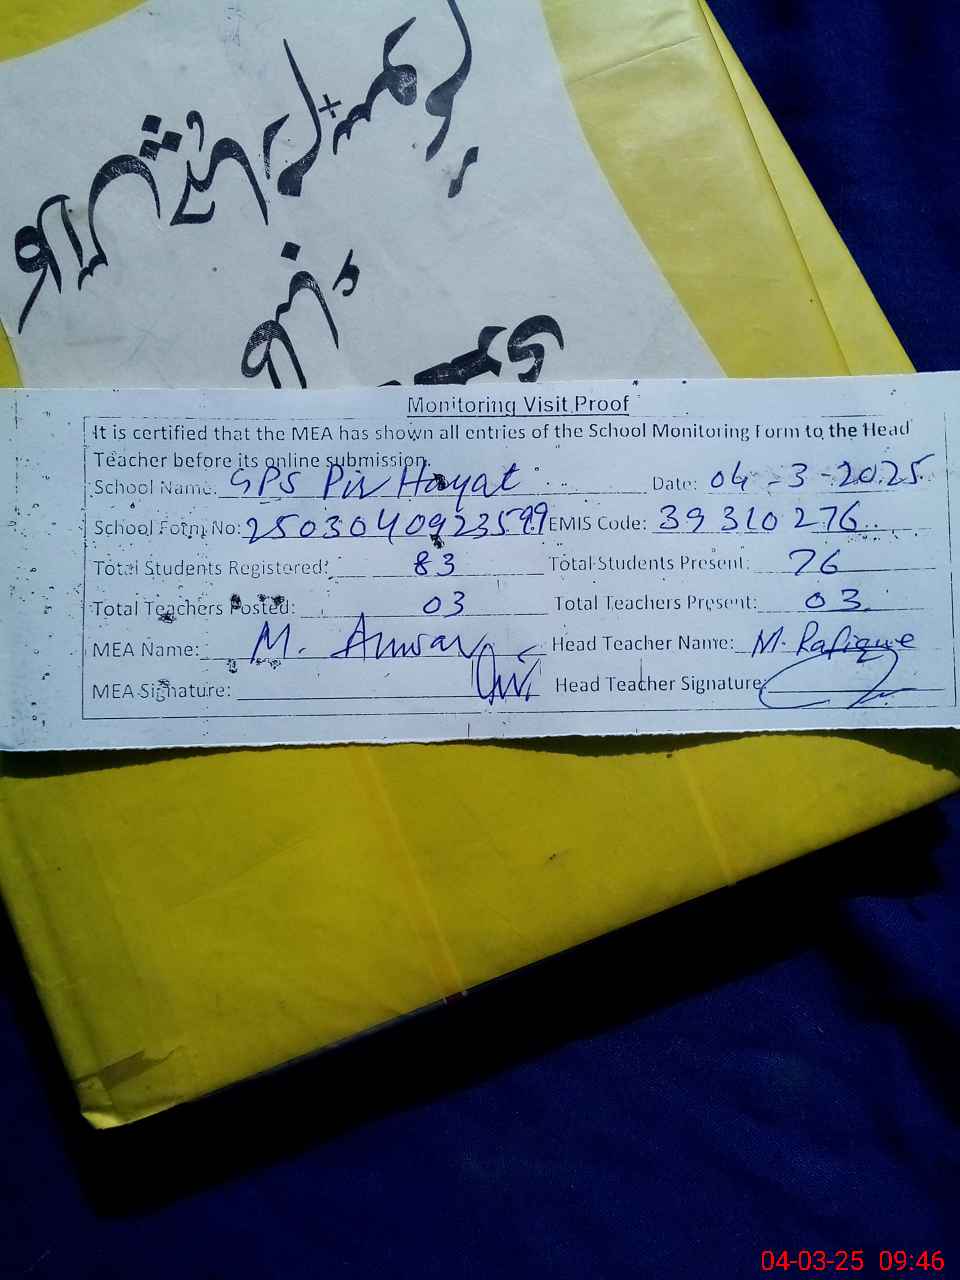 Monitoring Visit Proof
It is certified that the MEA has shown all entries of the School Monitoring Form to the Head
Teacher before its online submission.
School Name: GPS Pir Hayat Date: 04-3-2025
School Form No: 2503040923599 EMIS Code: 39310276
Total Students Registered: 83 Total Students Present: 76
Total Teachers Posted: 03 Total Teachers Present: 03
MEA Name: M. Anwar Head Teacher Name: M. Rafique
MEA Signature: Head Teacher Signature:
04-03-25 09:46